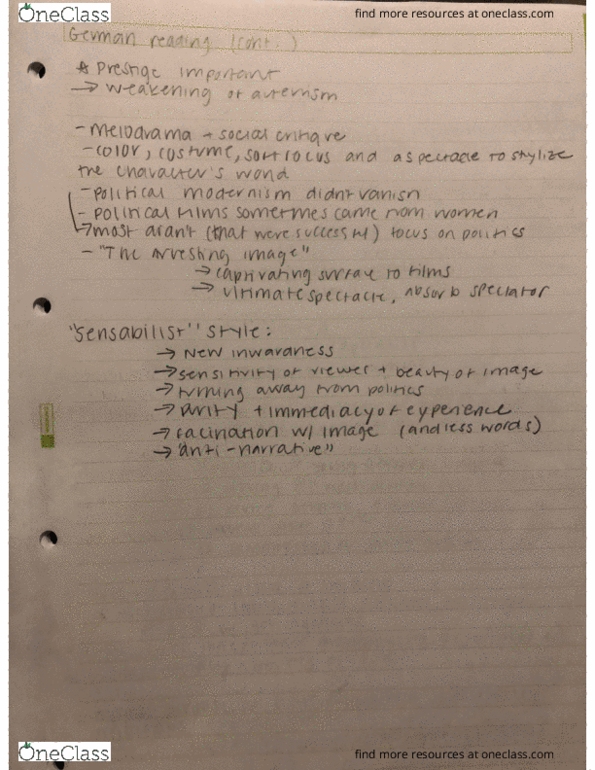 OneClass
find more resources at oneclass.com
German reading (cont.)
* Prestige important
→ weakening of auterism
- melodrama + social critique
- color, costume, soft focus and a spectacle to stylize
the character's world
- political modernism didn't vanish
- political films sometimes came from women
→ most didn't (that were successful) focus on politics
- "The Arresting image"
→ captivating surface to films
→ ultimate spectacle, absorb spectator
"Sensabilist" style:
→ New inwardness
→ sensitivity of viewer + beauty of image
→ turning away from politics
→ purity + immediacy of experience
→ facination w/ image (and less words)
→ "anti-narrative"
OneClass
find more resources at oneclass.com